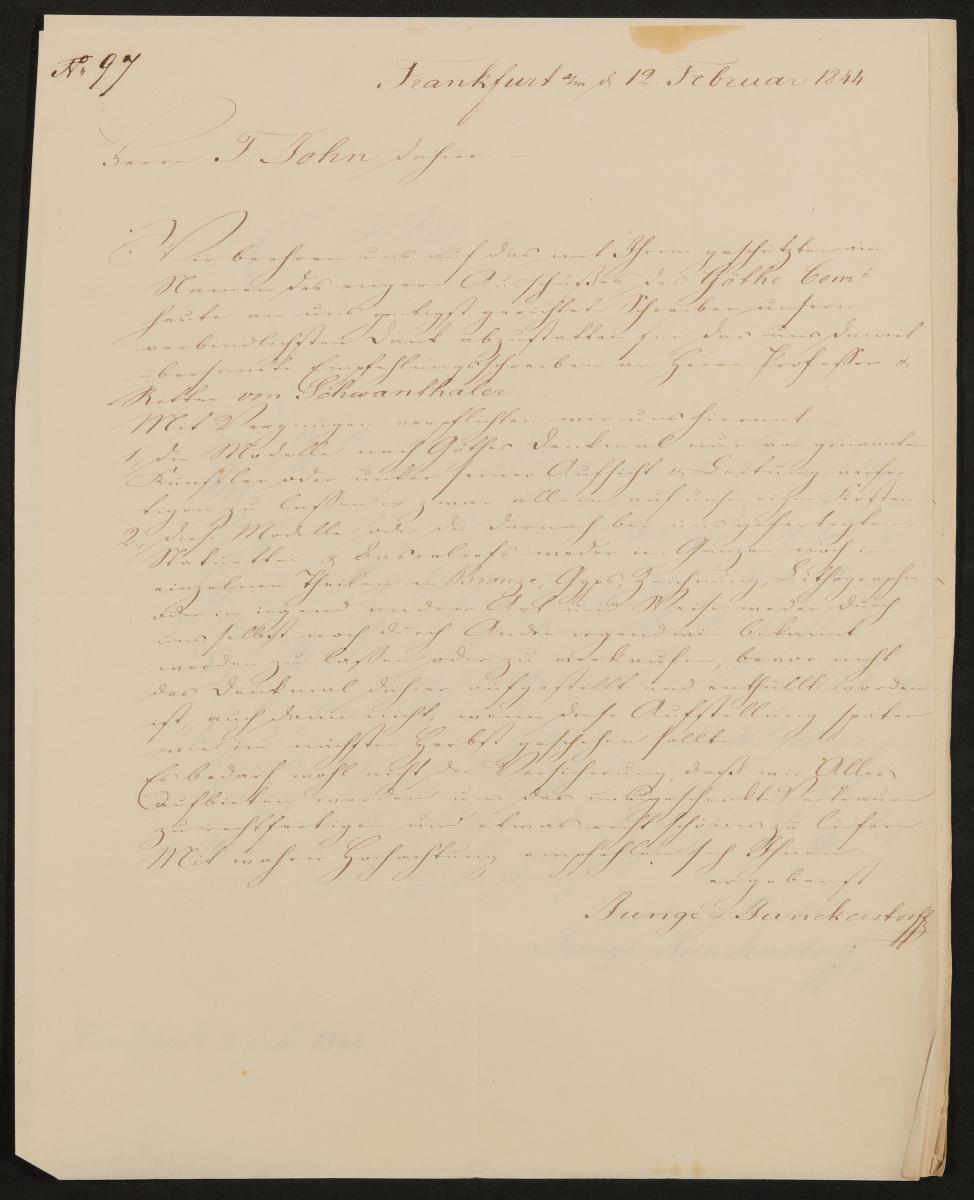 No 97
Frankfurt a/m d 12. Februar 1844
Herrn F. John dahier.
Wir beehren uns auf das mit Ihrem geschätzten im
Namen des engern Ausschußes des Göthe Comé
heute an uns gütigst gerichtete Schreiben unsern
verbindlichsten Dank abzustatten für das uns damit
übersandte Empfehlungsschreiben an Herrn Professor &
Ritter von Schwanthaler
Mit Vergnügen verpflichten wir uns hiermit
1, die Modelle nach Göthes Denkmal nur von genanntem
Künstler oder unter seiner Aufsicht & Leitung verfer
tigen zu lassen & zwar allein auf unsre eigne Kosten
2., diese Modelle oder die darnach bei uns gefertigten
Statuetten & Basreliefs weder im Ganzen noch in
einzelnen Theilen in Bronze, Gyps, Zeichnung, Lithographie
oder in irgend andrer Art und Weise, weder durch
uns selbst noch durch Andre irgendwie bekannt
werden zu lassen oder zu verkaufen, bevor nicht
das Denkmal dahier aufgestellt und enthüllt worden
ist, auch dann nicht, wenn diese Aufstellung später
wie im nächsten Herbst geschehen sollte
Es bedarf wohl nicht der Versicherung, daß wir Alles
aufbieten werden um das uns geschenkte Vertrauen
zu rechtfertigen und etwas recht schönes zu liefern.
Mit wahrer Hochachtung empfehlen sich Ihnen
ergebenst
Jungé & Junckerstorff